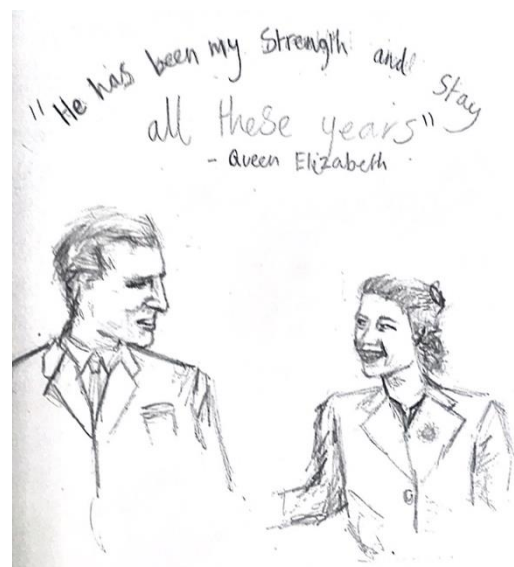 "He has been my Strength and Stay
all these years"
- Queen Elizabeth